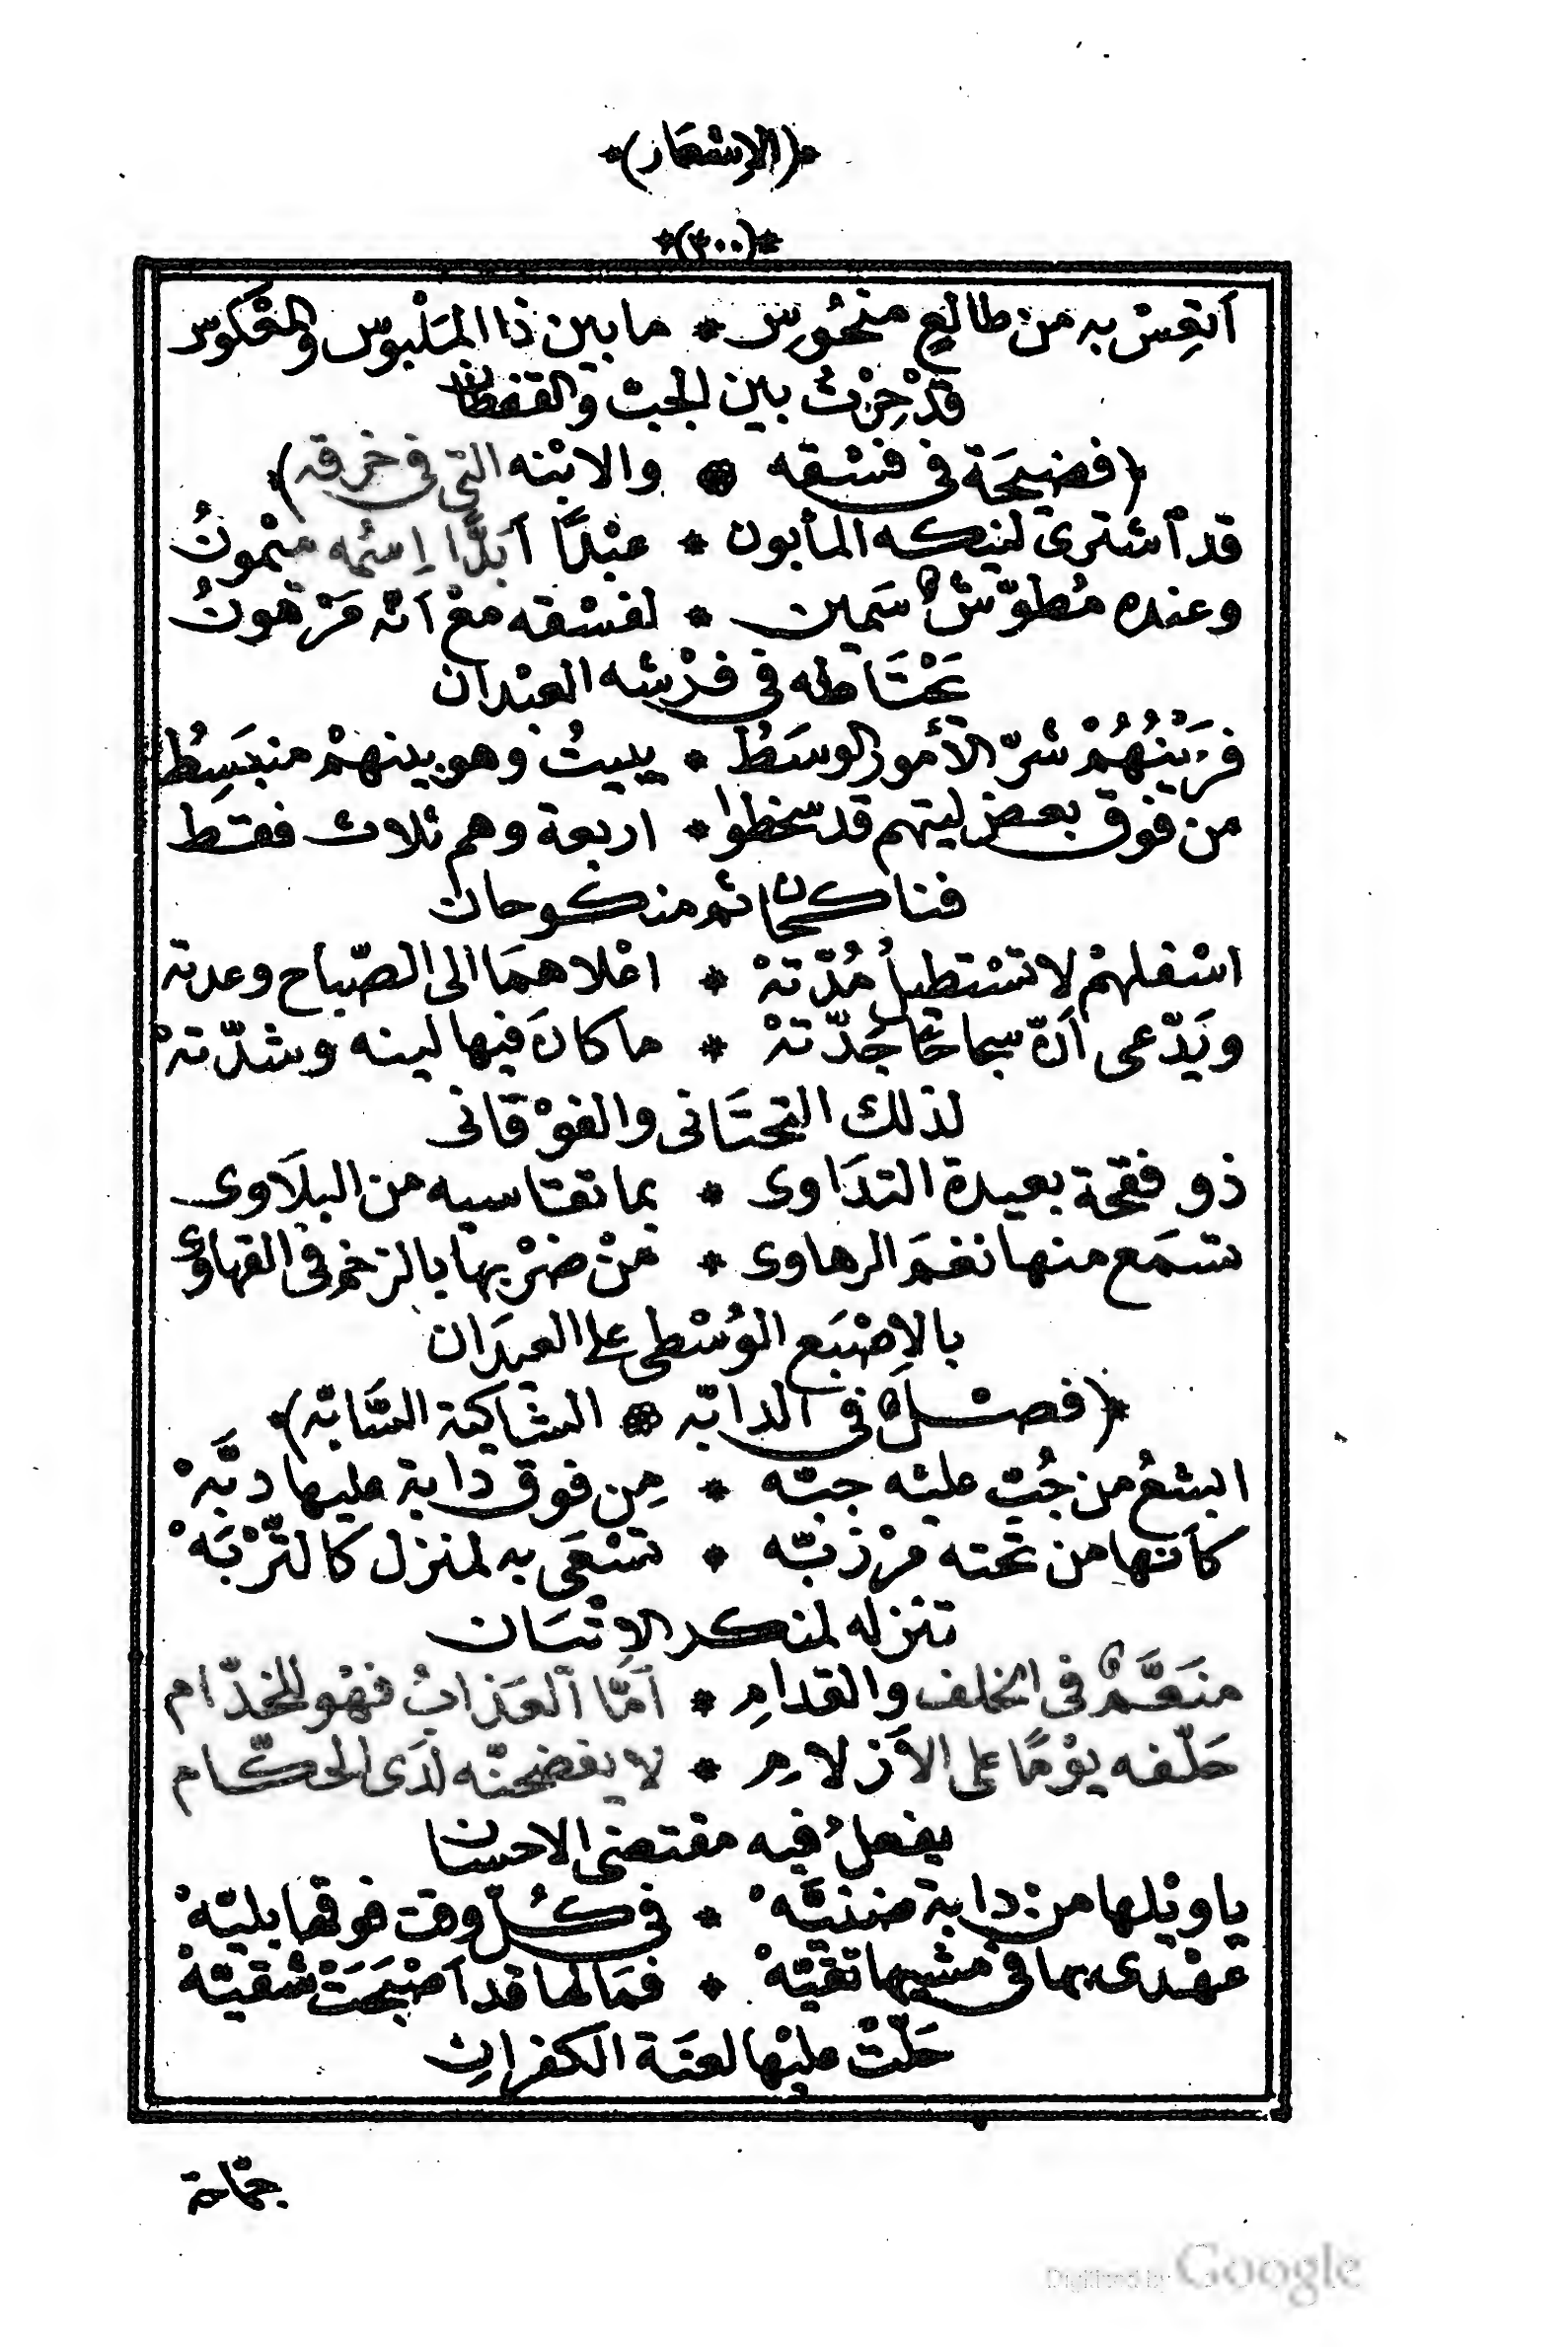 *(الإشعار)*
*(٣٠٠)*
أتعِسْ به من طالعٍ منحُوسِ * ما بين ذا الملْبوس والمعْكوس
قدْ حِزْتُ بين الجبّ والقفطان
(فضيحَة في فسْقه * والابْنه التي في خرقه)
قد أشترى لنيكه المأبون * عبْدًا أبَدًا إسمُه ميْمونُ
وعنده مُطوّشٌ سَمين * لفسْقه معْ أنّه مَرْهونُ
تحْتَاطه في فرْشه العبْدان
فرَيْنُهُمْ شرّ الأمور الوسَطُ * يبيتُ وهو بينهمْ منبَسِطُ
من فوق بعض ليتهم قد سخطوا * اربعة وهم ثلاث فقط
فناكحان ثم منكوحان
اسْفلهمْ لا تسْتطيلُ مُدّتهْ * اعْلاهمَا الى الصّباح وعدته
ويَدّعى أنّ سماحًا جَدّتهْ * ما كانَ فيها لينه وشدّتهْ
لذلك التحتَانى والفوْقَانى
ذو فقحة بعيدة التدَاوى * بما تقاسيه من البلَاوى
تسمَع منها نغمَ الرهاوى * منْ ضرْبها بالزخم في القهاوى
بالإصْبَع الوُسْطى على العيدَان
*(فصْلٌ في الدابّه * الشاكية السَّابّه)*
البشعُ من جُبّ عليْه جبّه * مِن فوق دابة عليها دبَّهْ
كأنها من تحته مرْزبّه * تسْعَى به لمنزل كالتّرْبَهْ
تنزله لمنكر الاتيَان
منَعَّمٌ في الخلف والقدامِ * أمَّا العَذابُ فهْو للخدّام
حَلّفه يوْمًا على الأزلامِ * لا يفضحنّه لدَى الحكّام
يفعلُ فيه مقتضى الاحسان
يا ويْلها منْ دابة ضنيَّهْ * في كُلّ وقت فوقها بليّهْ
عهْدى بها في مشيها تقيّهْ * فمَا لها قد أصْبَحَتْ شقيّهْ
حَلّتْ عليْها لعنَة الكفرانِ
Digitized by Google